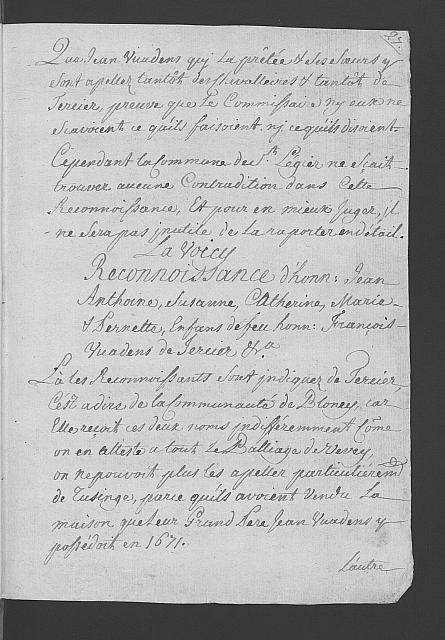 27.
Que Jean Vuadens quj la prêtée & ses sœurs y
sont apellez tantôt de & tantôt de
Tercier, preuve que Le Commissaire nj eux ne
scavoient ce quils faisoient nj ce quils disoient.
Cependant la Commune de St. Légier ne sçait
trouver aucune Contradition dans Cette
Reconnoissance, Et pour en mieux Juger, jl
ne sera pas jnutile de la raporter en détail.
La Voicy
Reconnoissance d'honn: Jean
Anthoine, Susanne, Catherine, Marie
& Pernette, Enfans de feu honn: François
Vuadens de Tercier &.a
Là les Reconnoissants sont jndiquez de Tercier,
C'est adire de la Communauté de Bloney, car
Elle reçoit ces deux noms jndifféremment Côme
on en atteste a tout Le Balliage de Vevey,
on ne pouvoit plus les apeller particuliérem.t
de Tusinge, parce quils avoient Vendu La
maison que Leur Grand Pere Jean Vuadens y
possédoit en 1671.
L'autre